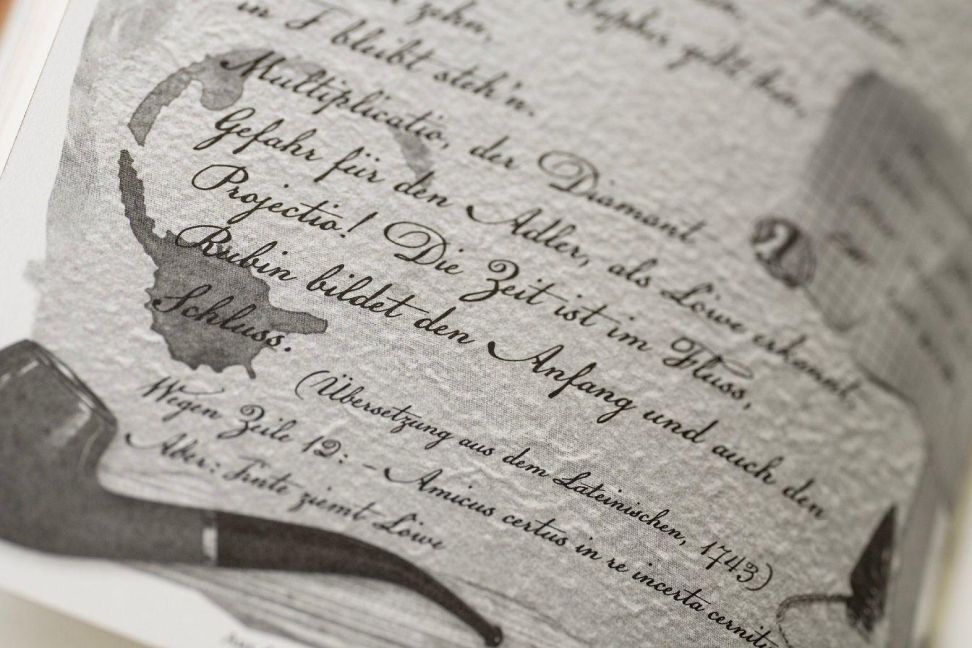 zehn,
in F bleibt steh'n.
Multiplicatio, der Diamant
Gefahr für den Adler, als Löwe erkannt,
Projectio! Die Zeit ist im Fluss,
Rubin bildet den Anfang und auch den
Schluss.
(Übersetzung aus dem Lateinischen, 1743)
Wegen Zeile 12: - Amicus certus in re incerta
Aber: Tinte ziemt Löwe